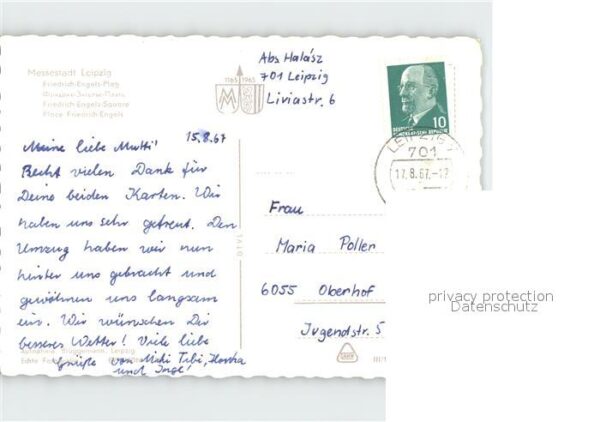 Messestadt Leipzig
Friedrich-Engels-Platz
Friedrich-Engels-Square
Place Friedrich-Engels
1165 1965
M
Abs Halász
701 Leipzig
Liviastr. 6
10
LEIPZIG
701
17.8.67.-12
15.8.67
Meine liebe Mutti!
Recht vielen Dank für
Deine beiden Karten. Wir
haben uns sehr gefreut. Den
Umzug haben wir nun
hinter uns gebracht und
gewöhnen uns langsam
ein. Wir wünschen Dir
besseres Wetter! Viele liebe
Grüße von Miki Tibi,
und Inge!
Frau
Maria Poller
6055 Oberhof
Jugendstr. 5
Leipzig
Echte
privacy protection
Datenschutz